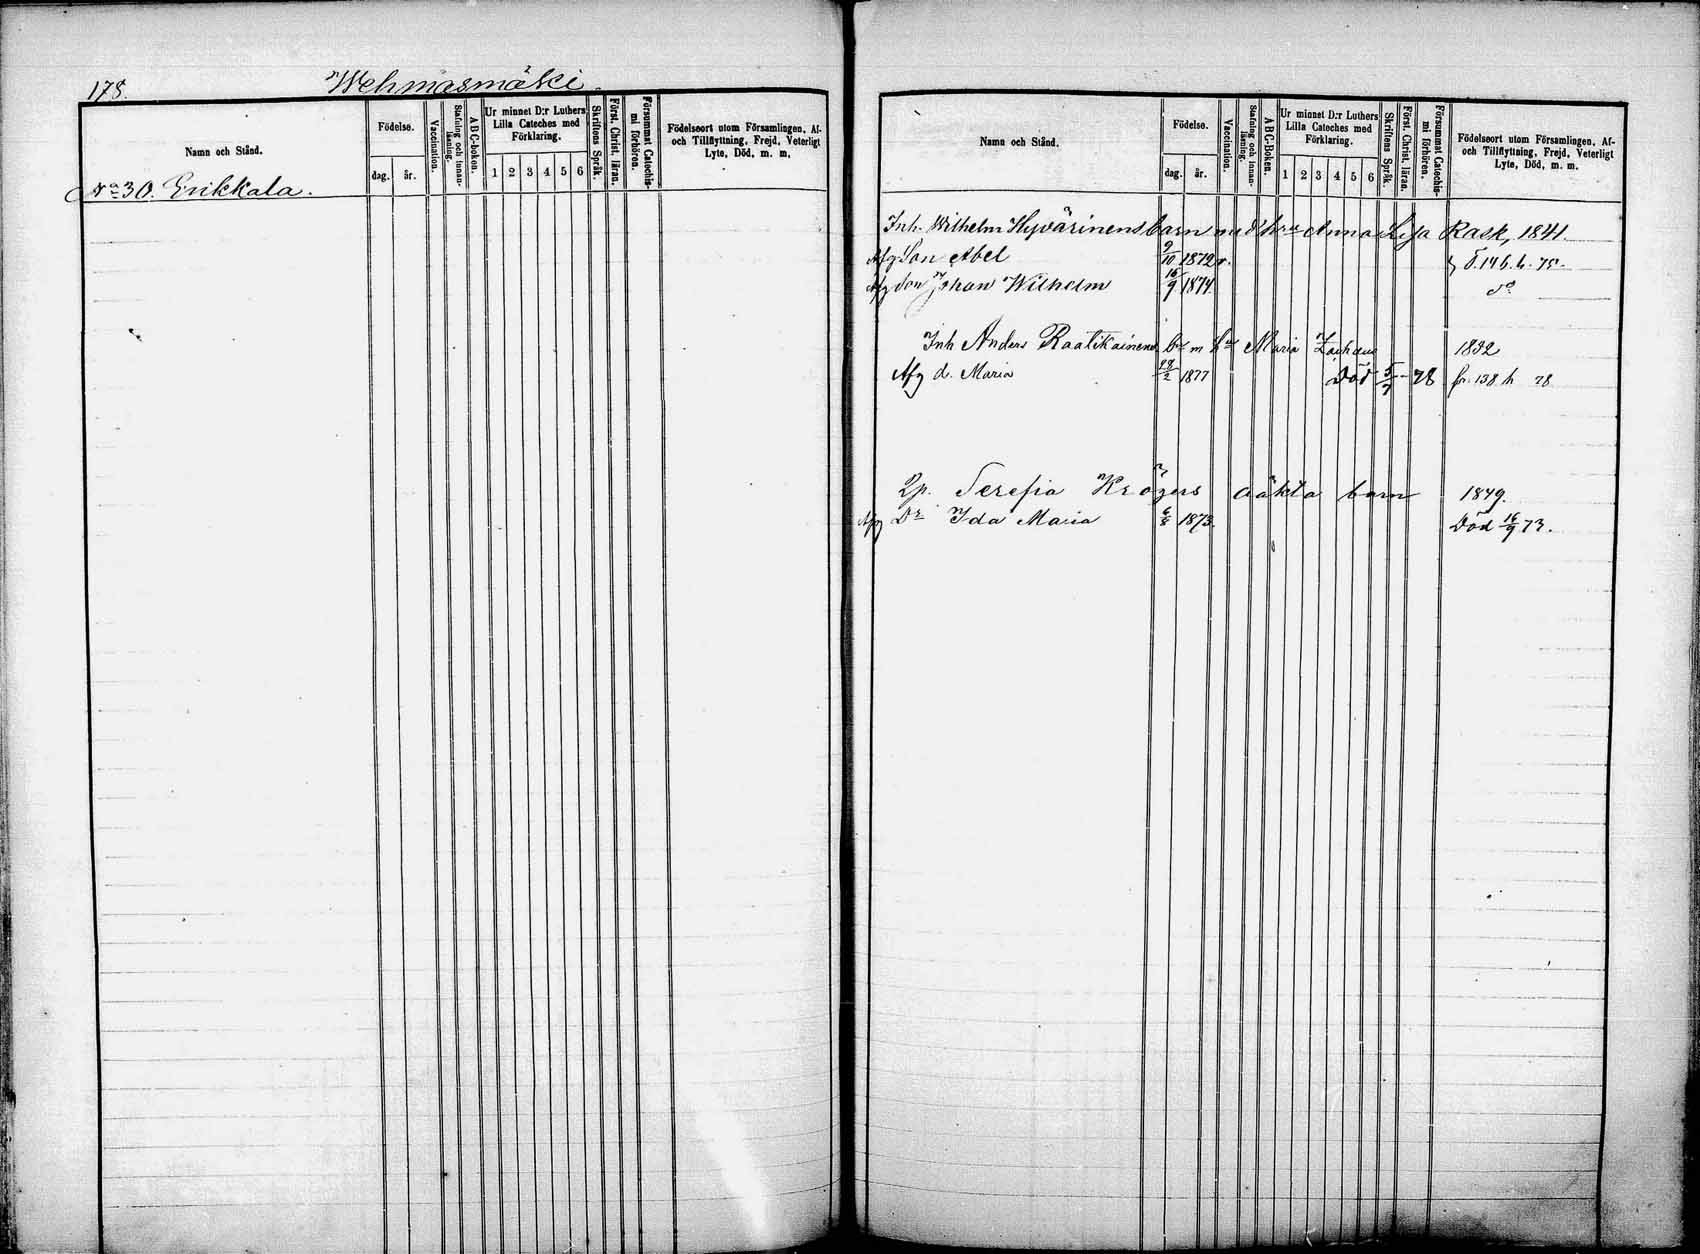 178. Wehmasmäki.
Namn och Stånd.
Födelse.
dag. år.
Vaccination.
Stafning och innanläsning.
ABC-boken.
Ur minnet D:r Luthers Lilla Cateches med Förklaring.
1 2 3 4 5 6
Skriftens Språk.
Först. Christ. läran.
Försummat Catechismi förhören.
Födelseort utom Församlingen, Af- och Tillflyttning, Frejd, Veterligt Lyte, Död, m. m.
No 30. Erikkala.
Namn och Stånd.
Födelse.
dag. år.
Vaccination.
Stafning och innanläsning.
ABC-Boken.
Ur minnet D:r Luthers Lilla Cateches med Förklaring.
1 2 3 4 5 6
Skriftens Språk.
Först. Christ. läran.
Försummat Catechismi förhören.
Födelseort utom Församlingen, Af- och Tillflyttning, Frejd, Veterligt Lyte, Död, m. m.
Inh. Wilhelm Hyvärinens barn med hru Anna Lisa Rask, 1841.
Afg Son Abel 9/10 1872 v. 146. h. 75.
Afg Son Johan Wilhelm 15/9 1874. do
Inh Anders Raatikainens bn m hu Maria 1832
Afg d. Maria 28/2 1877 Död 5/7 78 fr. 138 h 78
Qp. Serefia Krögers oäkta barn 1849.
Afg Dr Ida Maria 6/8 1873. Död 16/9 73.